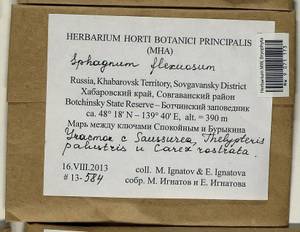 HERBARIUM HORTI BOTANICI PRINCIPALIS
(MHA)
Sphagnum flexuosum
Russia, Khabarovsk Territory, Sovgavansky District
Хабаровский край, Совгаванский район
Botchinsky State Reserve – Ботчинский заповедник
ca. 48° 18' N – 139° 40' E, alt. ≈ 390 m
Марь между ключами Спокойным и Бурыкина
Участок с Saussurea, Thelypteris
palustris и Carex rostrata.
16.VIII.2013
coll. M. Ignatov & E. Ignatova
# 13-584
собр. М. Игнатов и Е. Игнатова